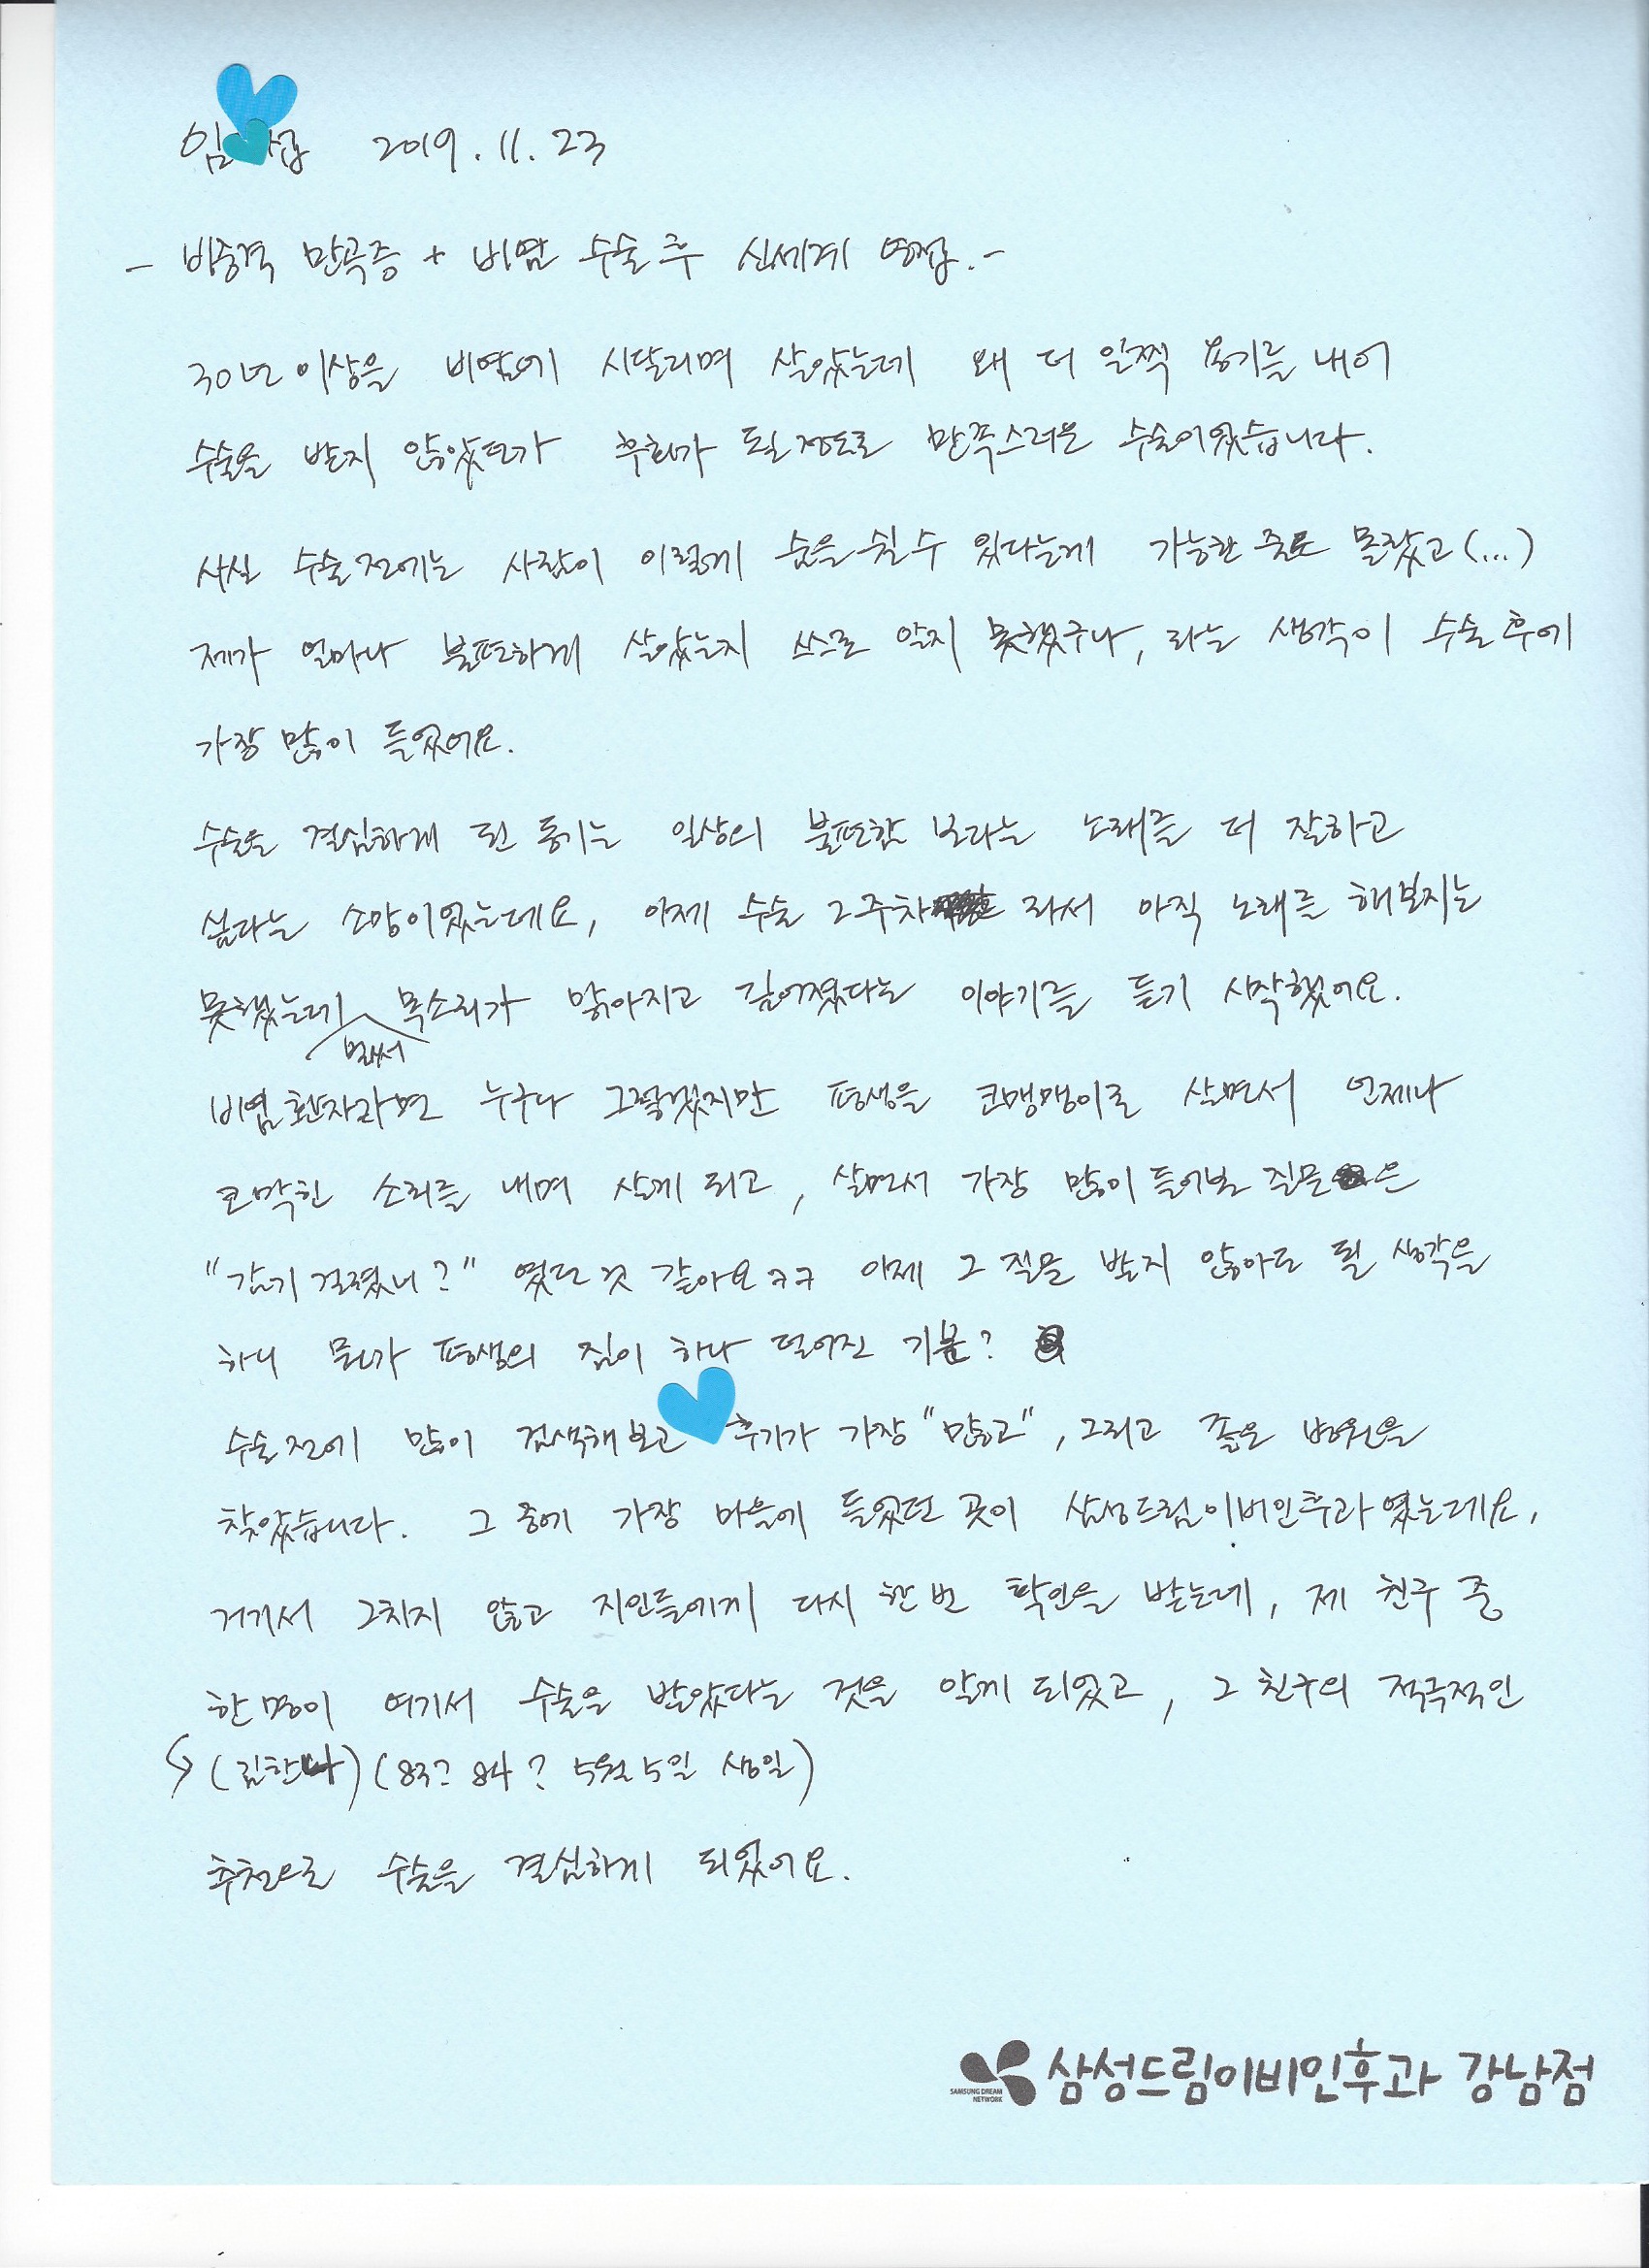 임 섭 2019. 11. 23
- 비중격 만곡증 + 비염 수술 후 신세계 영접. -
30년 이상을 비염에 시달리며 살았는데 왜 더 일찍 용기를 내어
수술을 받지 않았던가 후회가 될 정도로 만족스러운 수술이었습니다.
사실 수술전에는 사람이 이렇게 숨을 쉴 수 있다는게 가능한 줄도 몰랐고(...)
제가 얼마나 불편하게 살았는지 스스로 알지 못했구나, 라는 생각이 수술 후에
가장 많이 들었어요.
수술을 결심하게 된 동기는 일상의 불편함 보다는 노래를 더 잘하고
싶다는 소망이었는데요, 이제 수술 2주차 라서 아직 노래를 해보지는
못했는데 벌써 목소리가 맑아지고 깊어졌다는 이야기를 듣기 시작했어요.
비염환자라면 누구나 그렇겠지만 평생을 코맹맹이로 살면서 언제나
코막힌 소리를 내며 살게 되고, 살면서 가장 많이 들어본 질문은
"감기 걸렸니?" 였던 것 같아요ㅋㅋ 이제 그 질문 받지 않아도 될 생각을
하니 뭔가 평생의 짐이 하나 덜어진 기분?
수술전에 많이 검색해보고 후기가 가장 "많고", 그리고 좋은 병원을
찾았습니다. 그 중에 가장 마음에 들었던 곳이 삼성드림이비인후과였는데요,
거기서 그치지 않고 지인들에게 다시 한 번 확인을 받는데, 제 친구 중
한 명이 여기서 수술을 받았다는 것을 알게 되었고, 그 친구의 적극적인
(김한나) (83? 84? 5월 5일 생일)
추천으로 수술을 결심하게 되었어요.
SAMSUNG DREAM NETWORK 삼성드림이비인후과 강남점